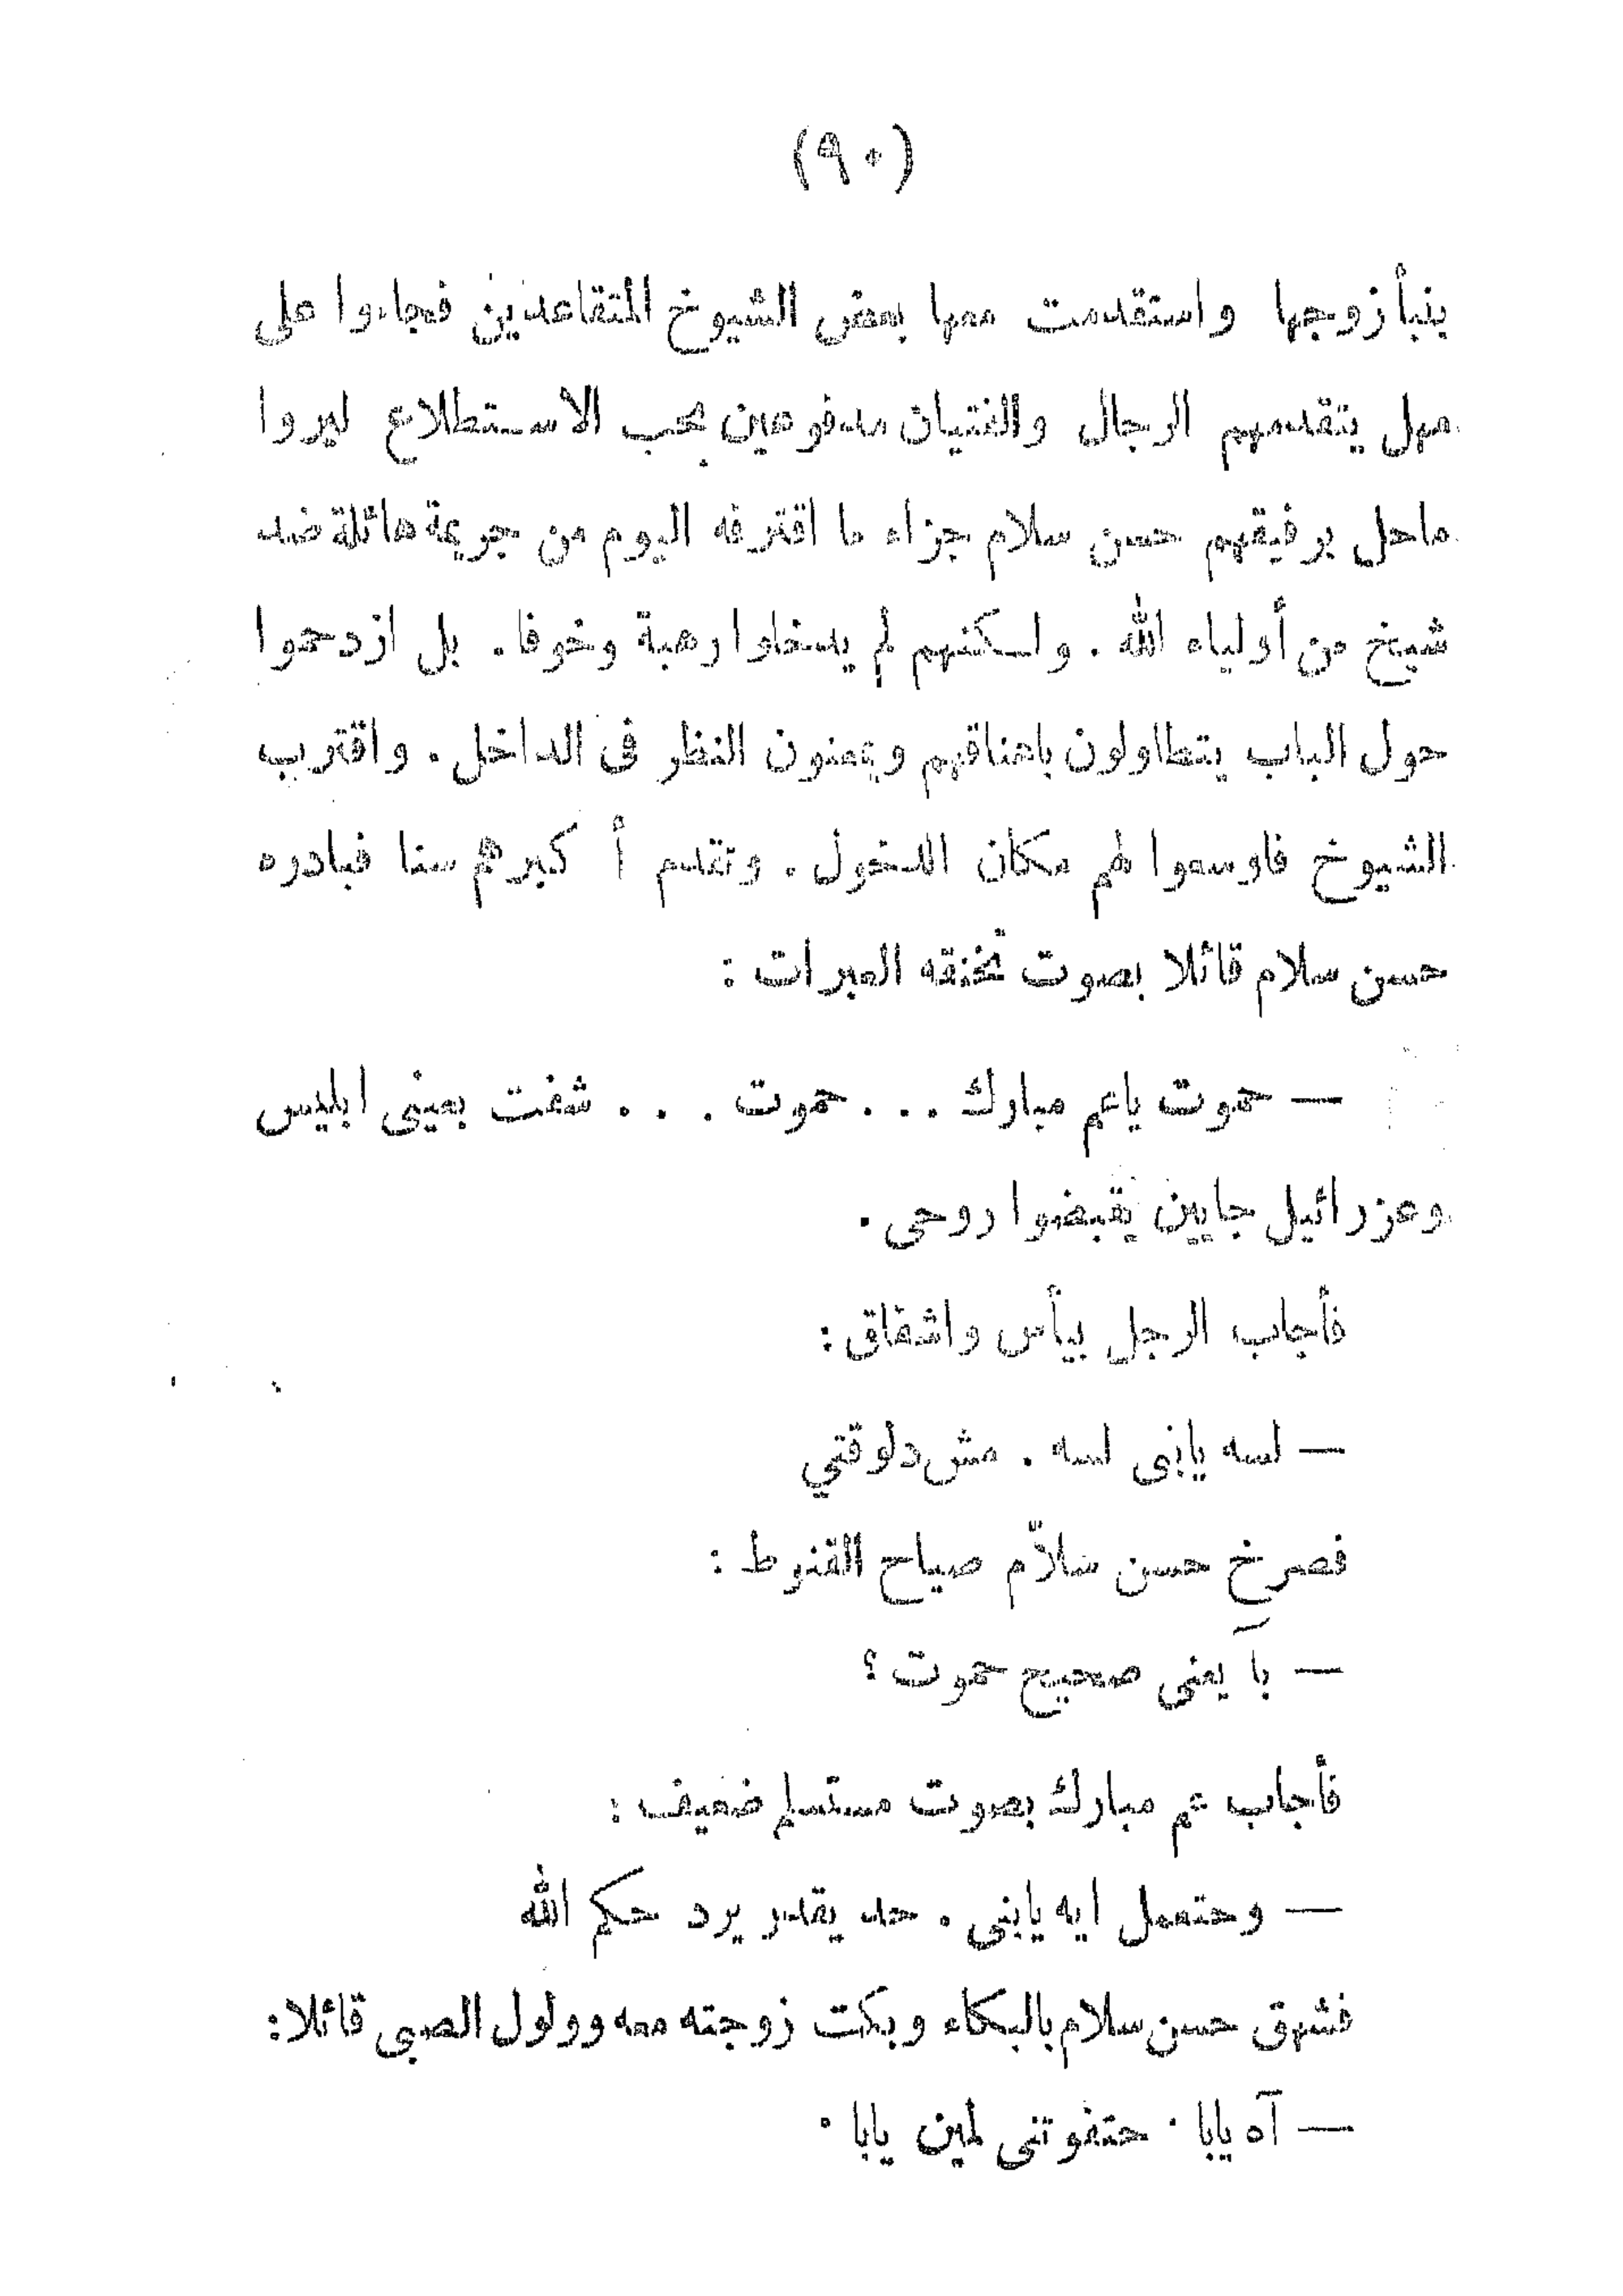 (٩٠)
بنبأ زوجها واستقدمت معها بعض الشيوخ المتقاعدين فجاءوا على
مهل يتقدمهم الرجال والفتيان مدفوعين بحب الاستطلاع ليروا
ماحل برفيقهم حسن سلام جزاء ما اقترفه اليوم من جريمة هائلة ضد
شيخ من أولياء الله . ولكنهم لم يدخلوا رهبة وخوفا . بل ازدحموا
حول الباب يتطاولون باعناقهم ويمعنون النظر فى الداخل . واقترب
الشيوخ فاوسعوا لهم مكان الدخول . وتقدم أكبرهم سنا فبادره
حسن سلام قائلا بصوت تخنقه العبرات :
— حموت ياعم مبارك ... حموت ... شفت بعينى ابليس
وعزرائيل جايين يقبضوا روحى .
فأجاب الرجل بيأس واشفاق :
— لسه يابنى لسه . مش دلوقتي
فصرخ حسن سلاّم صياح القنوط :
— يآ يعنى صحيح حموت ؟
فأجاب عم مبارك بصوت مستسلم ضعيف :
— وحتعمل ايه يابنى . حد يقدر يرد حكم الله
فشهق حسن سلام بالبكاء وبكت زوجته معه وولول الصبى قائلا :
— آه يابا . حتفوتنى لمين يابا .